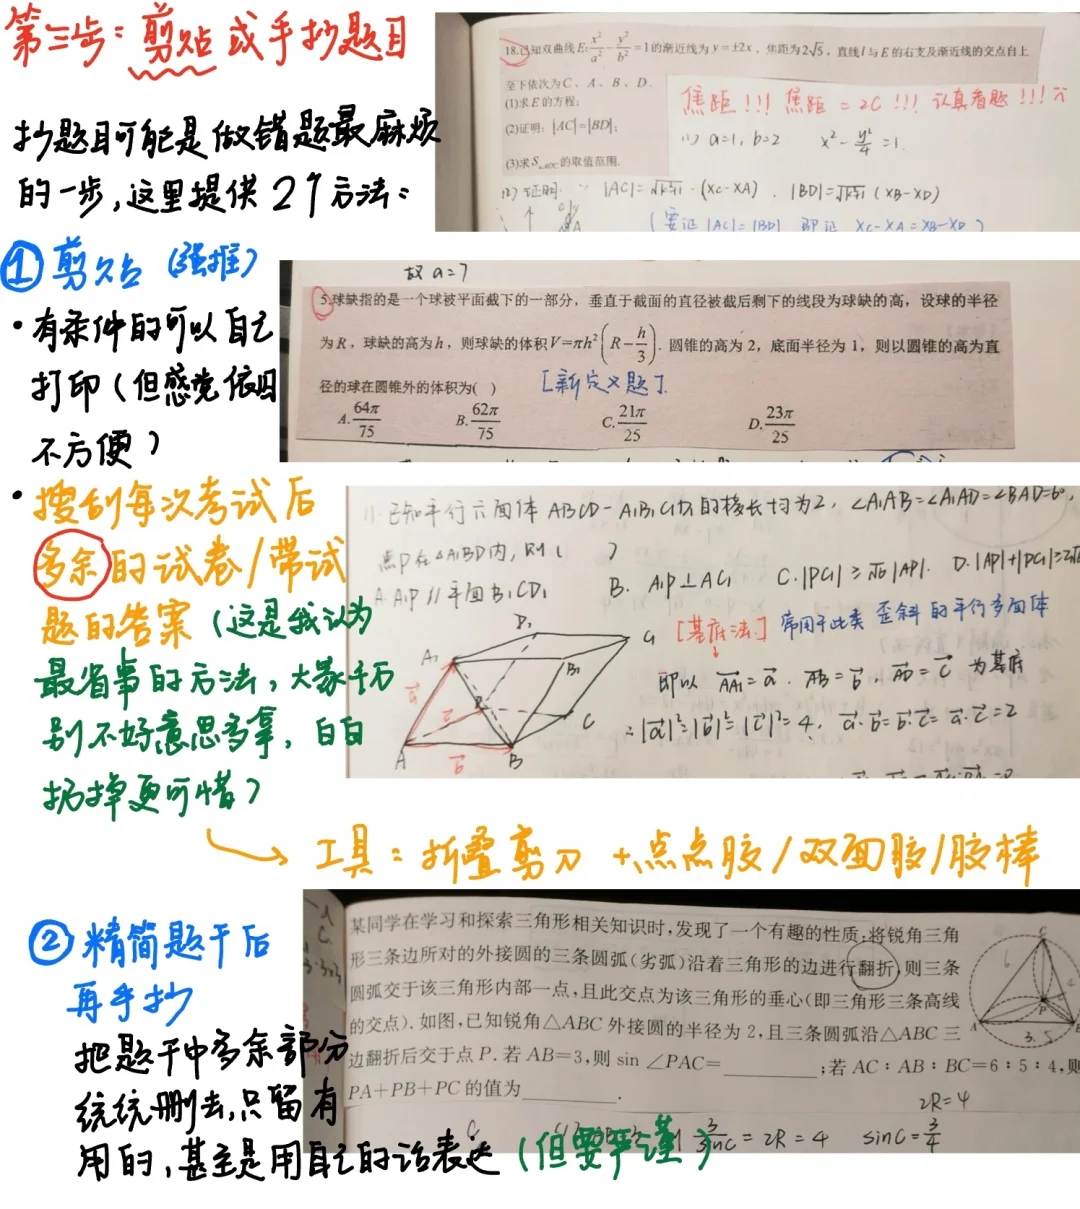 第三步：剪贴或手抄题目
抄题目可能是做错题最麻烦
的一步，这里提供2个方法：
①剪贴（强推）
·有条件的可以自己
打印（但感觉依旧
不方便）
·搜刮每次考试后
多余的试卷/带试
题的答案（这是我认为
最省事的方法，大家千万
别不好意思多拿，白白
扔掉更可惜）
→工具：折叠剪刀+点点胶/双面胶/胶棒
②精简题干后
再手抄
把题干中多余部分
统统删去，只留有
用的，甚至是用自己的话表达（但要严谨）
18.已知双曲线E:x²/a²-y²/b²=1的渐近线为y=±2x，焦距为2√5，直线l与E的右支及渐近线的交点自上
至下依次为C、A、B、D.
(1)求E的方程；
(2)证明：|AC|=|BD|；
(3)求S△AOC的取值范围.
焦距!!! 焦距=2C!!! 认真看题!!!
(1) a=1, b=2 x²-y²/4=1.
(2) 证明: |AC|=√k²+1·(xC-xA). |BD|=√k²+1(xB-xD)
(要证|AC|=|BD| 即证 xC-xA=xB-xD)
故a=7
5.球缺指的是一个球被平面截下的一部分，垂直于截面的直径被截后剩下的线段为球缺的高，设球的半径
为R，球缺的高为h，则球缺的体积V=πh²(R-h/3). 圆锥的高为2，底面半径为1，则以圆锥的高为直
径的球在圆锥外的体积为( )
[新定义题].
A.64π/75 B.62π/75 C.21π/25 D.23π/25
11.已知平行六面体ABCD-A₁B₁C₁D₁的棱长均为2，∠A₁AB=∠A₁AD=∠BAD=60°,
点P在△A₁BD内，则( )
A.A₁P∥平面B₁CD₁ B. A₁P⊥AC₁ C.|PC₁|≥√6|AP|. D.|AP|+|PC₁|≥2√6
[基底法] 常用于此类 歪斜的平行多面体
即以 AA₁=a. AB=b, AD=c 为基底
∴|a|²=|b|²=|c|²=4, a·b=b·c=a·c=2
D₁
C₁
A₁
B₁
a
P
C
A
b
B
某同学在学习和探索三角形相关知识时，发现了一个有趣的性质：将锐角三角
形三条边所对的外接圆的三条圆弧(劣弧)沿着三角形的边进行翻折，则三条
圆弧交于该三角形内部一点，且此交点为该三角形的垂心(即三角形三条高线
的交点).如图，已知锐角△ABC外接圆的半径为2，且三条圆弧沿△ABC三
边翻折后交于点P.若AB=3,则sin∠PAC=________;若AC:AB:BC=6:5:4,则
PA+PB+PC的值为________.
C
P
A
B
2R=4
3/sinC=2R=4 sinC=3/4